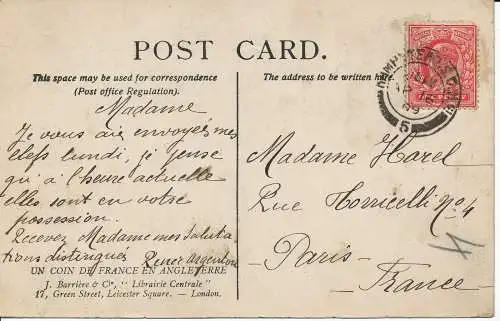 POST CARD.
This space may be used for correspondence
(Post office Regulation).
The address to be written
Madame
Je vous ai envoyés mes
clefs lundi, je pense
qu'à l'heure actuelle
elles sont en votre
possession.
Recevez Madame mes saluta
tions distingués
UN COIN DE FRANCE EN ANGLETERRE
J. Barrière & Cº, "Librairie Centrale"
17, Green Street, Leicester Square. — London.
Madame Harel
Rue Torricelli No 4
Paris
France
5
09
4